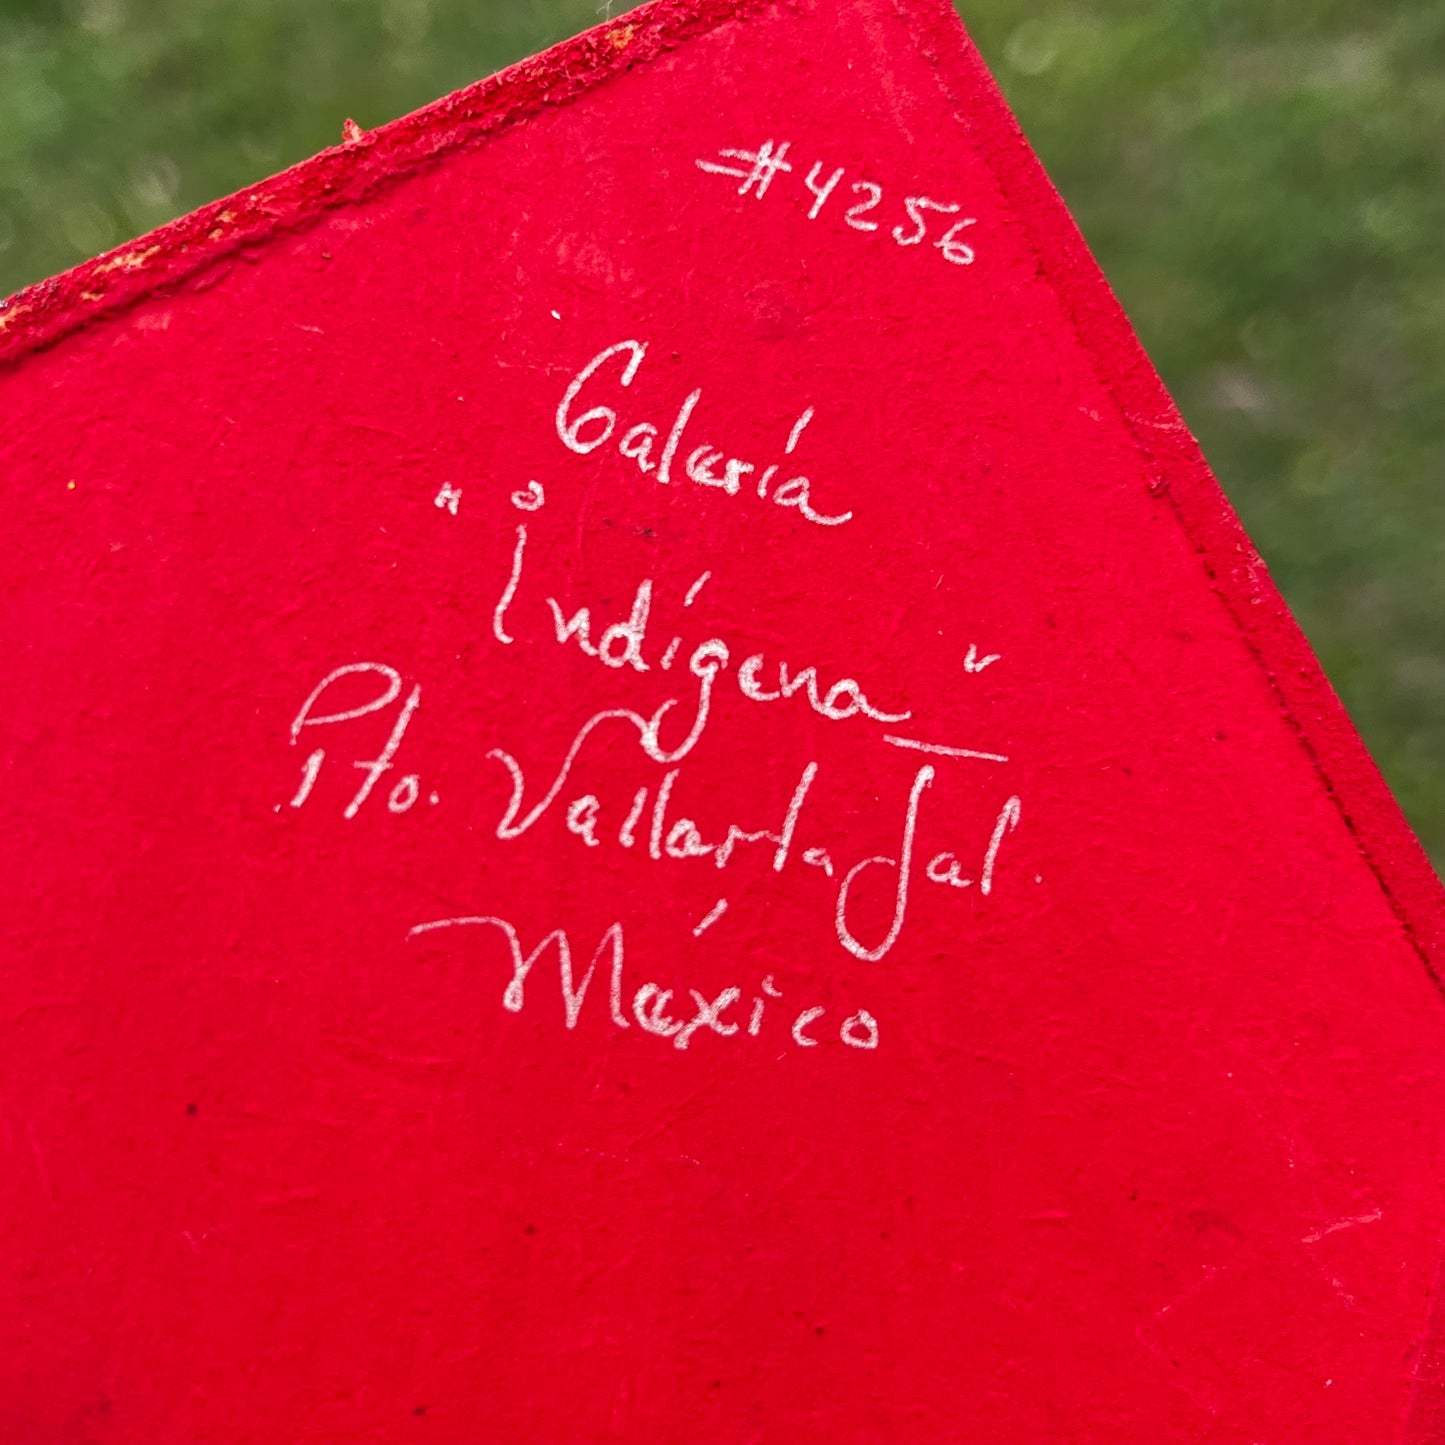 #4256
Galería
"Indígena"
Pto. Vallarta Jal.
México